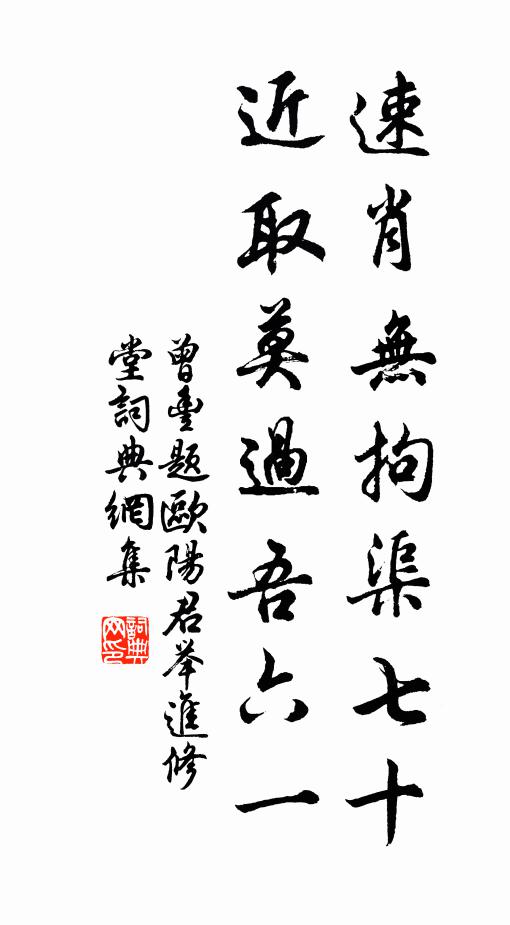 速肖無拘渠七十
近取莫過吾六一
曾豐題歐陽君举進修
堂詞典網集
詞典网印